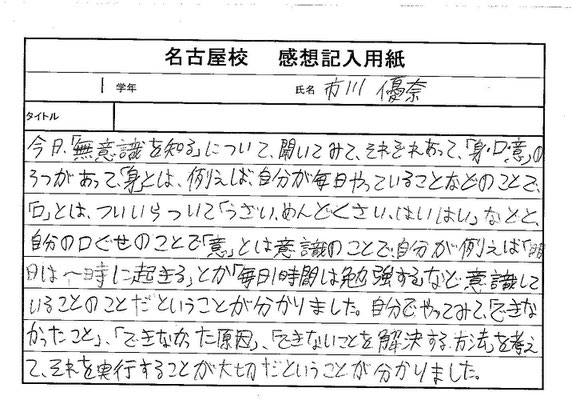 名古屋校 感想記入用紙
1 学年 氏名 市川 優奈
タイトル
今日、「無意識を知る」について、聞いてみて、それぞれあって、「身・口・意」の
3つがあって「身」とは、例えば、自分が毎日やっていることなどのことで、
「口」とは、ついいらついて「うざい、めんどくさい、はいはい」などと、
自分の口ぐせのことで「意」とは意識のことで、自分が例えば「明
日は〜時に起きる」とか「毎日1時間は勉強する」など意識して
いることのことだということが分かりました。自分でやってみて、「できな
かったこと」、「できなかった原因」、「できないことを解決する方法」を考え
て、それを実行することが大切だということが分かりました。